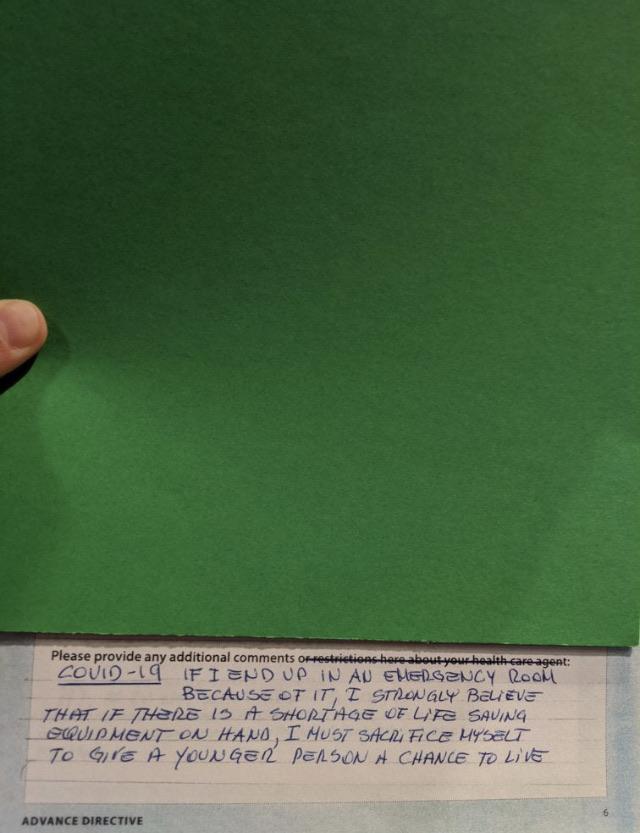 Please provide any additional comments or restrictions here about your health care agent:
COVID-19 IF I END UP IN AN EMERGENCY ROOM
BECAUSE OF IT, I STRONGLY BELIEVE
THAT IF THERE IS A SHORTAGE OF LIFE SAVING
EQUIPMENT ON HAND, I MUST SACRIFICE MYSELF
TO GIVE A YOUNGER PERSON A CHANCE TO LIVE
ADVANCE DIRECTIVE
6